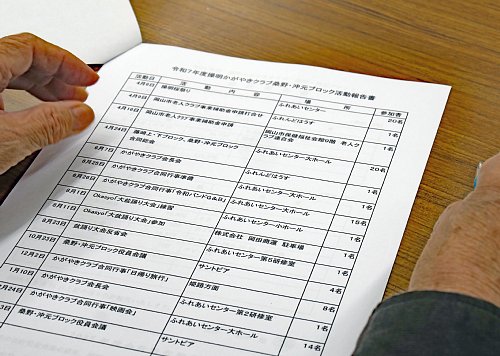 令和7年度操明かがやきクラブ桑野・沖元ブロック活動報告書
活動日 活動内容 場所 参加者
4月6日 操明桜祭り ふれあいセンター 20名
4月10日 岡山市老人クラブ事業補助金申請打合せ ふれんどはうす 1名
4月18日 岡山市老人クラブ事業補助金申請 岡山市保健福祉会館6階 老人クラブ連合会 1名
4月24日 桑野・沖元ブロック合同総会 ふれあいセンター大ホール 20名
かがやきクラブ会長会 ふれんどはうす 1名
8月25日 かがやきクラブ合同行事準備 ふれあいセンター大ホール 1名
8月26日 かがやきクラブ合同行事「令和バンドG&B」 ふれあいセンター大ホール 15名
Okasyo「大盆踊り大会」練習 ふれあいセンター小ホール 1名
Okasyo「大盆踊り大会」参加 株式会社 岡田商運 駐車場 1名
9月23日 盆踊り大会反省会 ふれあいセンター第5研修室 1名
10月23日 桑野・沖元ブロック役員会議 サントピア 4名
12月2日 かがやきクラブ合同行事「日帰り旅行」 姫路方面 8名
1月10日 かがやきクラブ会長会 ふれあいセンター第2研修室 1名
2月24日 かがやきクラブ合同行事「映画会」 ふれあいセンター大ホール 14名
桑野・沖元ブロック役員会議 サントピア